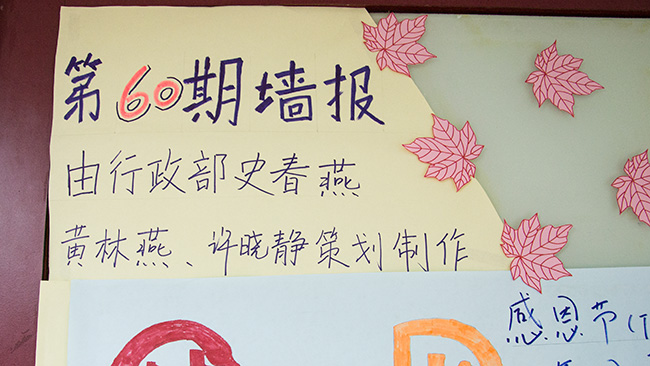 第60期墙报
由行政部史春燕
黄林燕、许晓静策划制作
感恩节